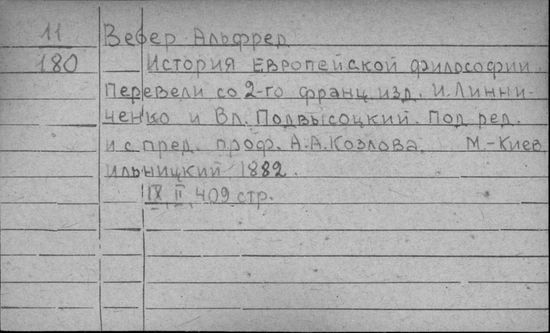 11 Вебер Альфред
180 История европейской философии.
Перевели со 2-го франц. изд. И. Линни-
ченко и Вл. Подвысоцкий. Под ред.
и с пред. проф. А.А. Козлова. М.-Киев
ильницкий 1882.
IX, II, 409 стр.